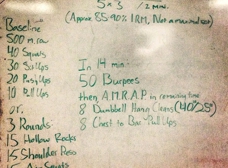 5x3 /2 mins.
(Approx 85-90% 1RM, Not a maximal
Baseline
500 m row
40 Squats
30 Sit Ups
20 Push Ups
10 Pull Ups
or.
3 Rounds
15 Hollow Rocks
15 Shoulder Press
In 14 min:
50 Burpees
then A.M.R.A.P in remaining time
8 Dumbbell Hang Cleans (40/25)
8 Chest to Bar Pull Ups